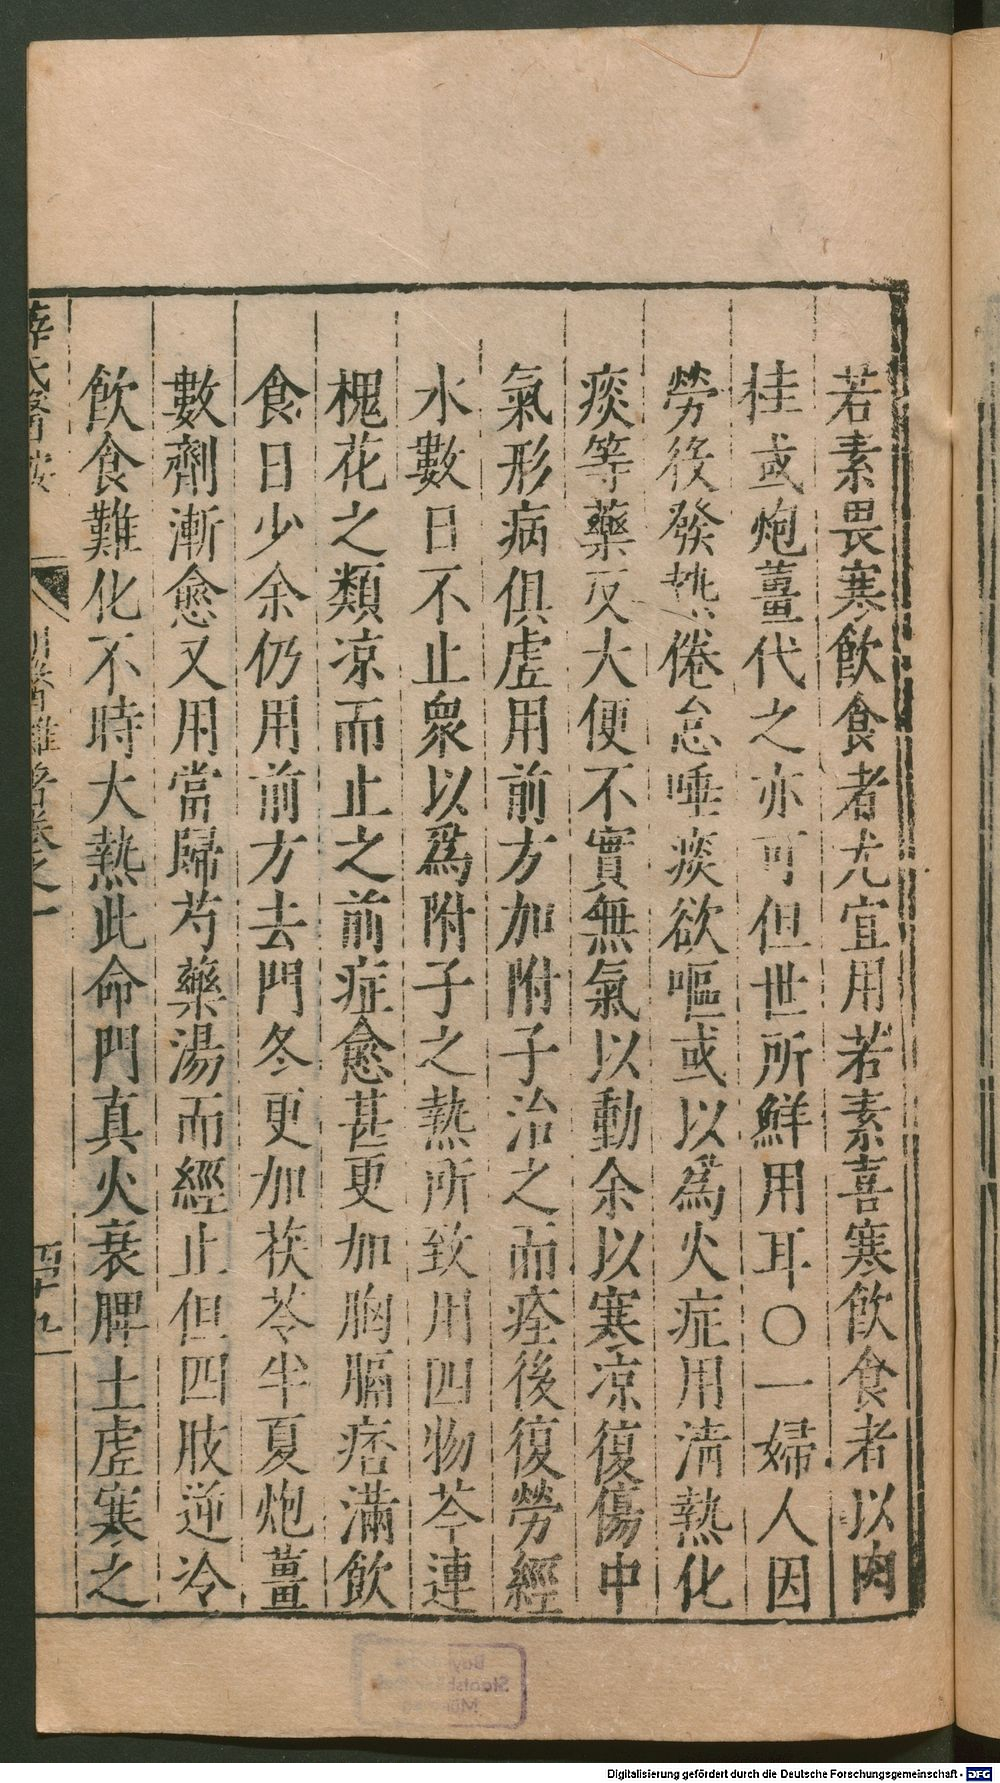 若素畏寒飲食者尤宜用若素喜寒飲食者以肉
桂或炮薑代之亦可但世所鮮用耳○一婦人因
勞役發熱倦怠唾痰欲嘔或以為火症用清熱化
痰等藥反大便不實無氣以動余以寒涼復傷中
氣形病俱虛用前方加附子治之而痊後復勞經
水數日不止衆以為附子之熱所致用四物芩連
槐花之類涼而止之前症愈甚更加胸膈痞滿飲
食日少余仍用前方去門冬更加茯苓半夏炮薑
數劑漸愈又用當歸芍藥湯而經止但四肢逆冷
飲食難化不時大熱此命門真火衰脾土虛寒之
薛氏醫按
明醫雜著卷之一
四十九
Digitalisierung gefördert durch die Deutsche Forschungsgemeinschaft - DFG